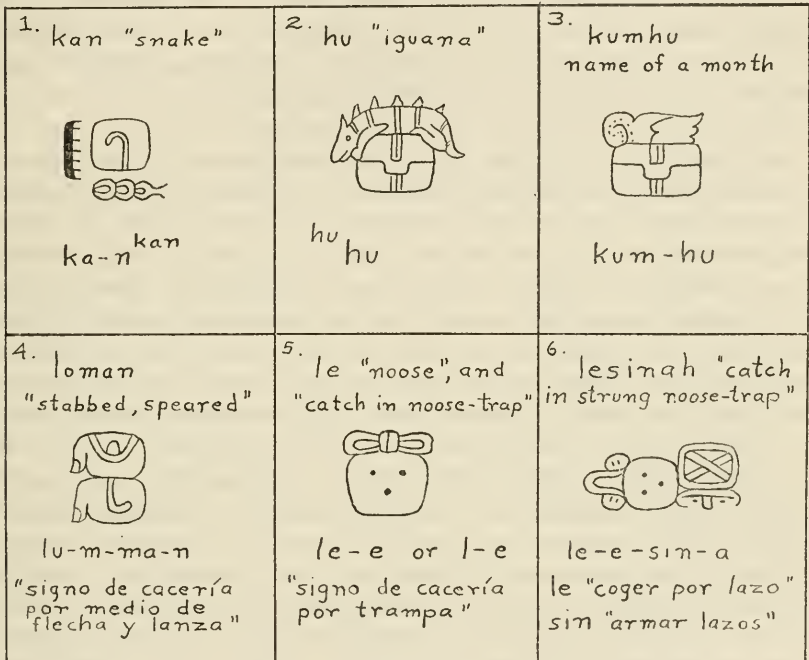 1. kan "snake"
ka-n kan
2. hu "iguana"
hu hu
3. kumhu
name of a month
kum-hu
4. loman
"stabbed, speared"
lu-m-ma-n
"signo de cacería
por medio de
flecha y lanza"
5. le "noose", and
"catch in noose-trap"
le-e or l-e
"signo de cacería
por trampa"
6. lesinah "catch
in strung noose-trap"
le-e-sin-a
le "coger por lazo"
sin "armar lazos"